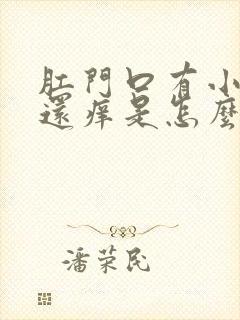 肛門口有小
還痒是怎麼
潘荣民